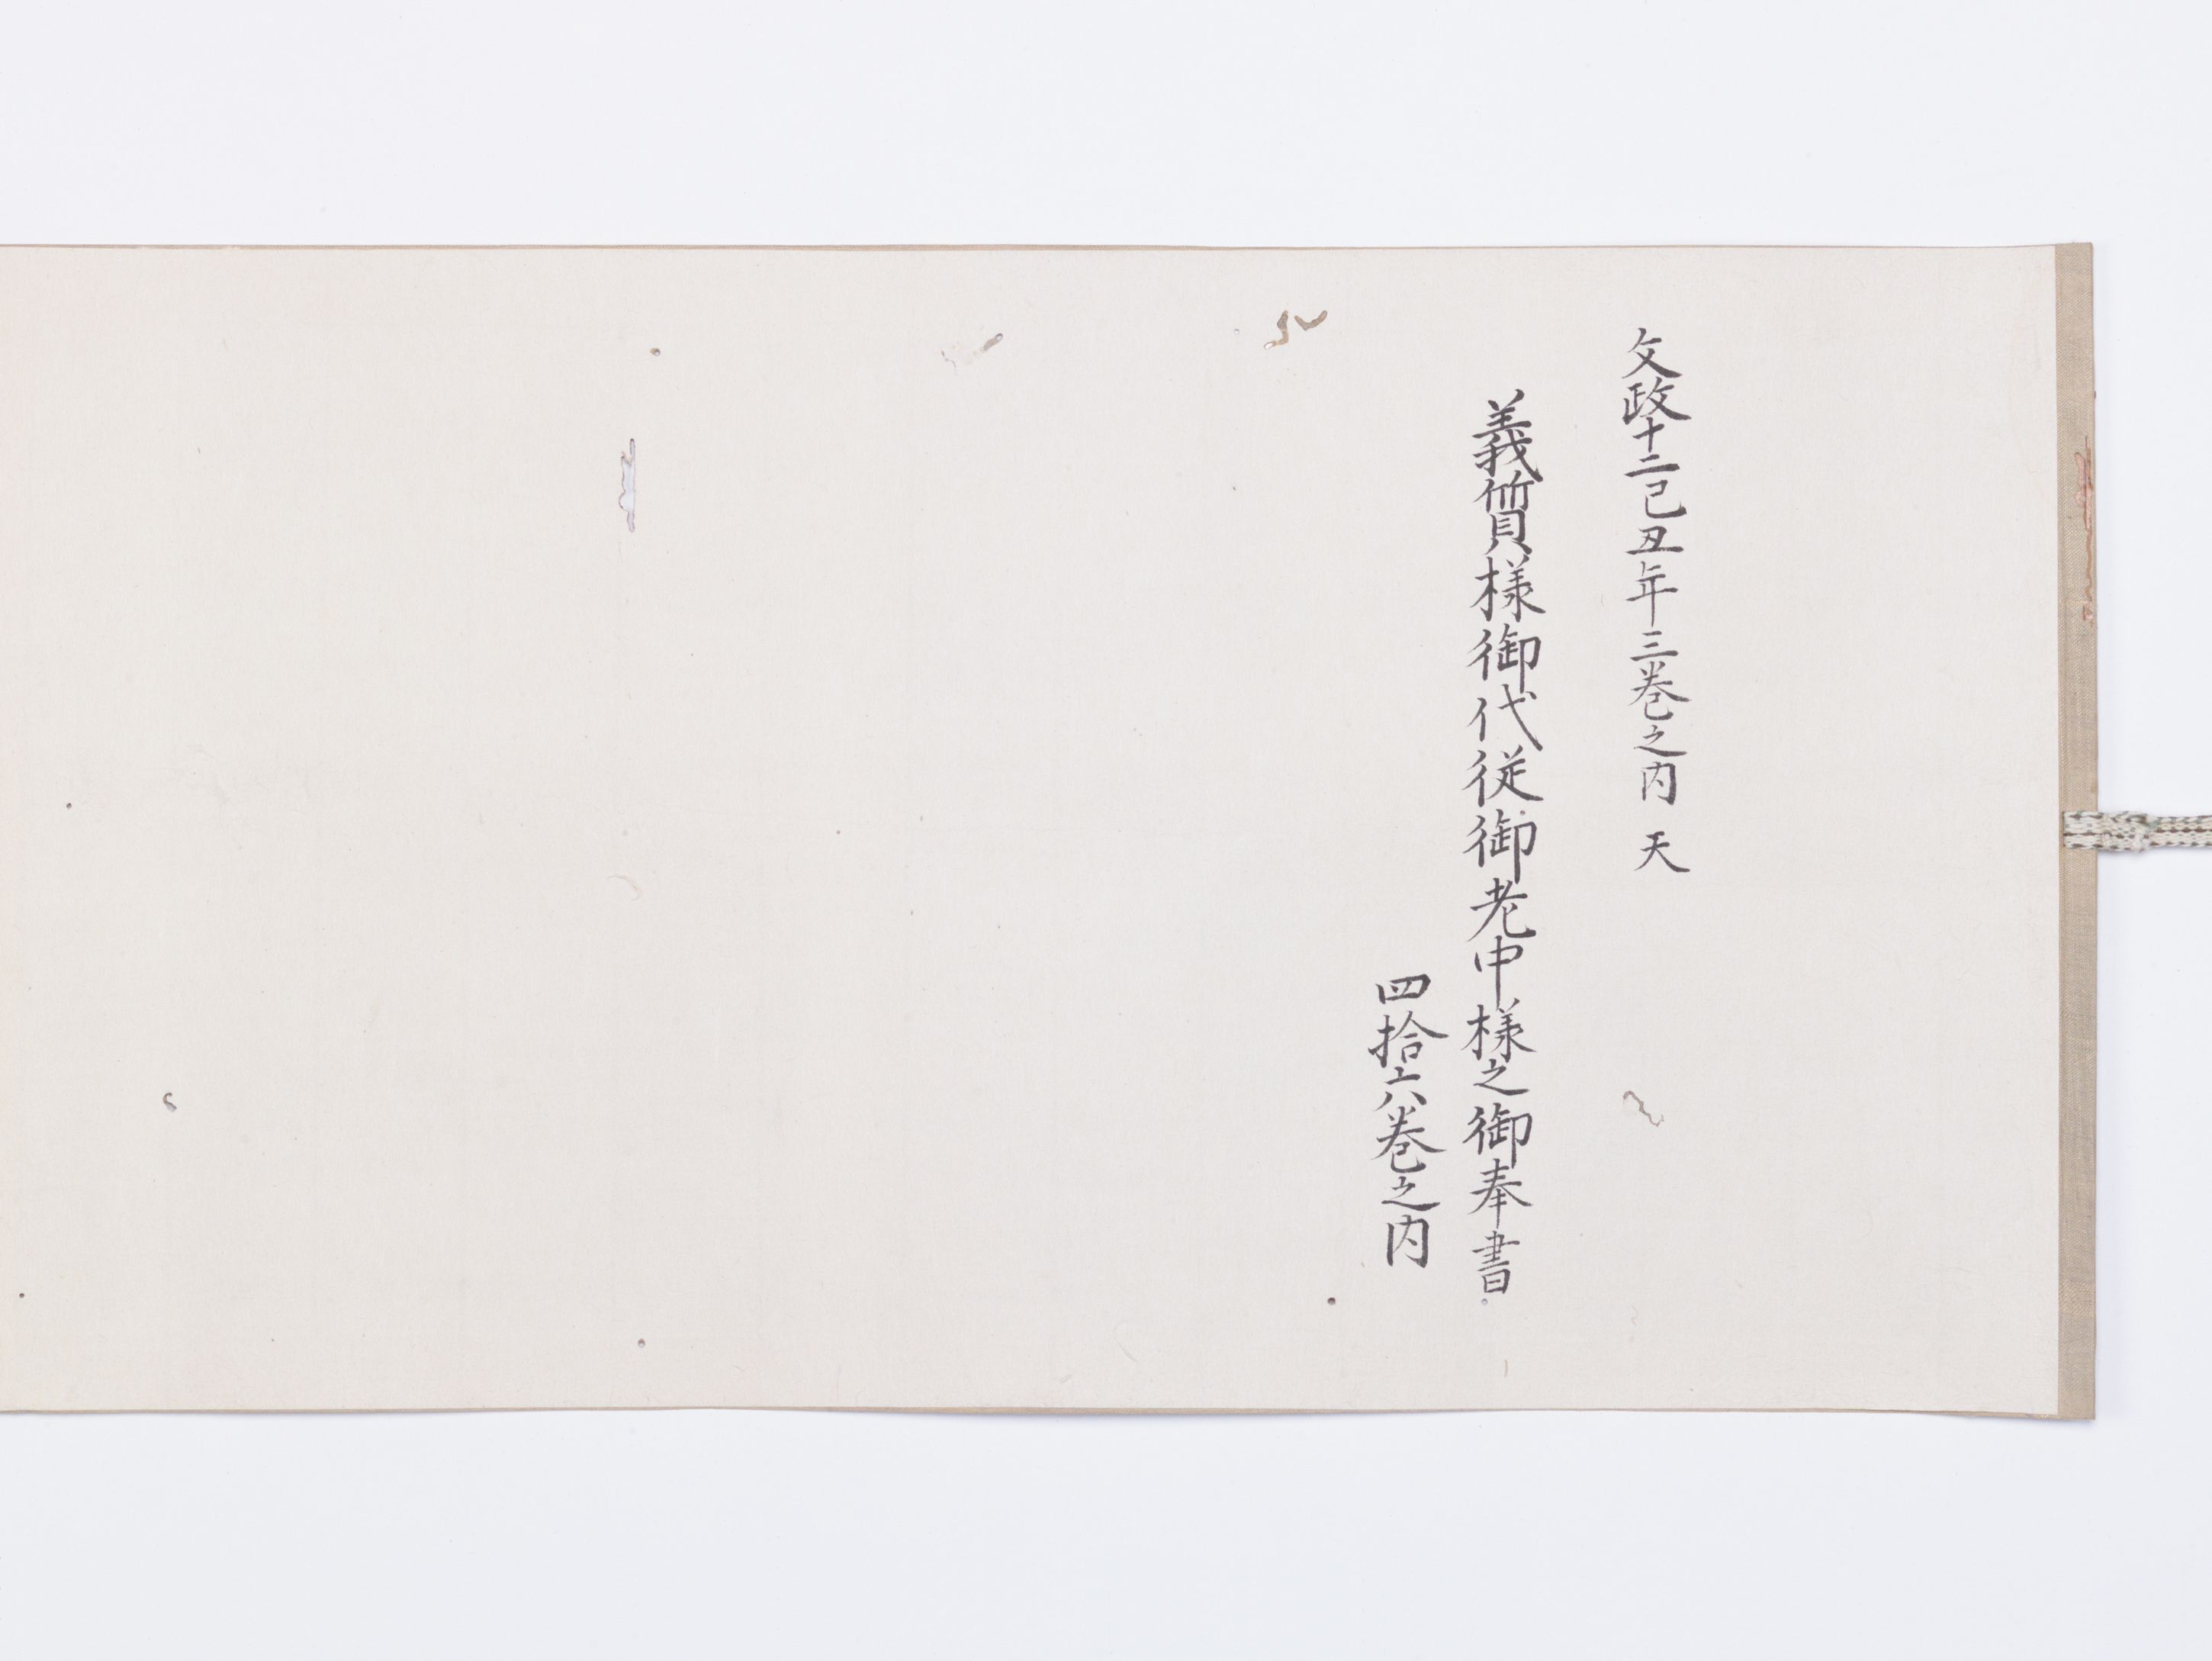 文政十二己丑年三巻之内 天
義質様御代従御老中様之御奉書
四拾六巻之内